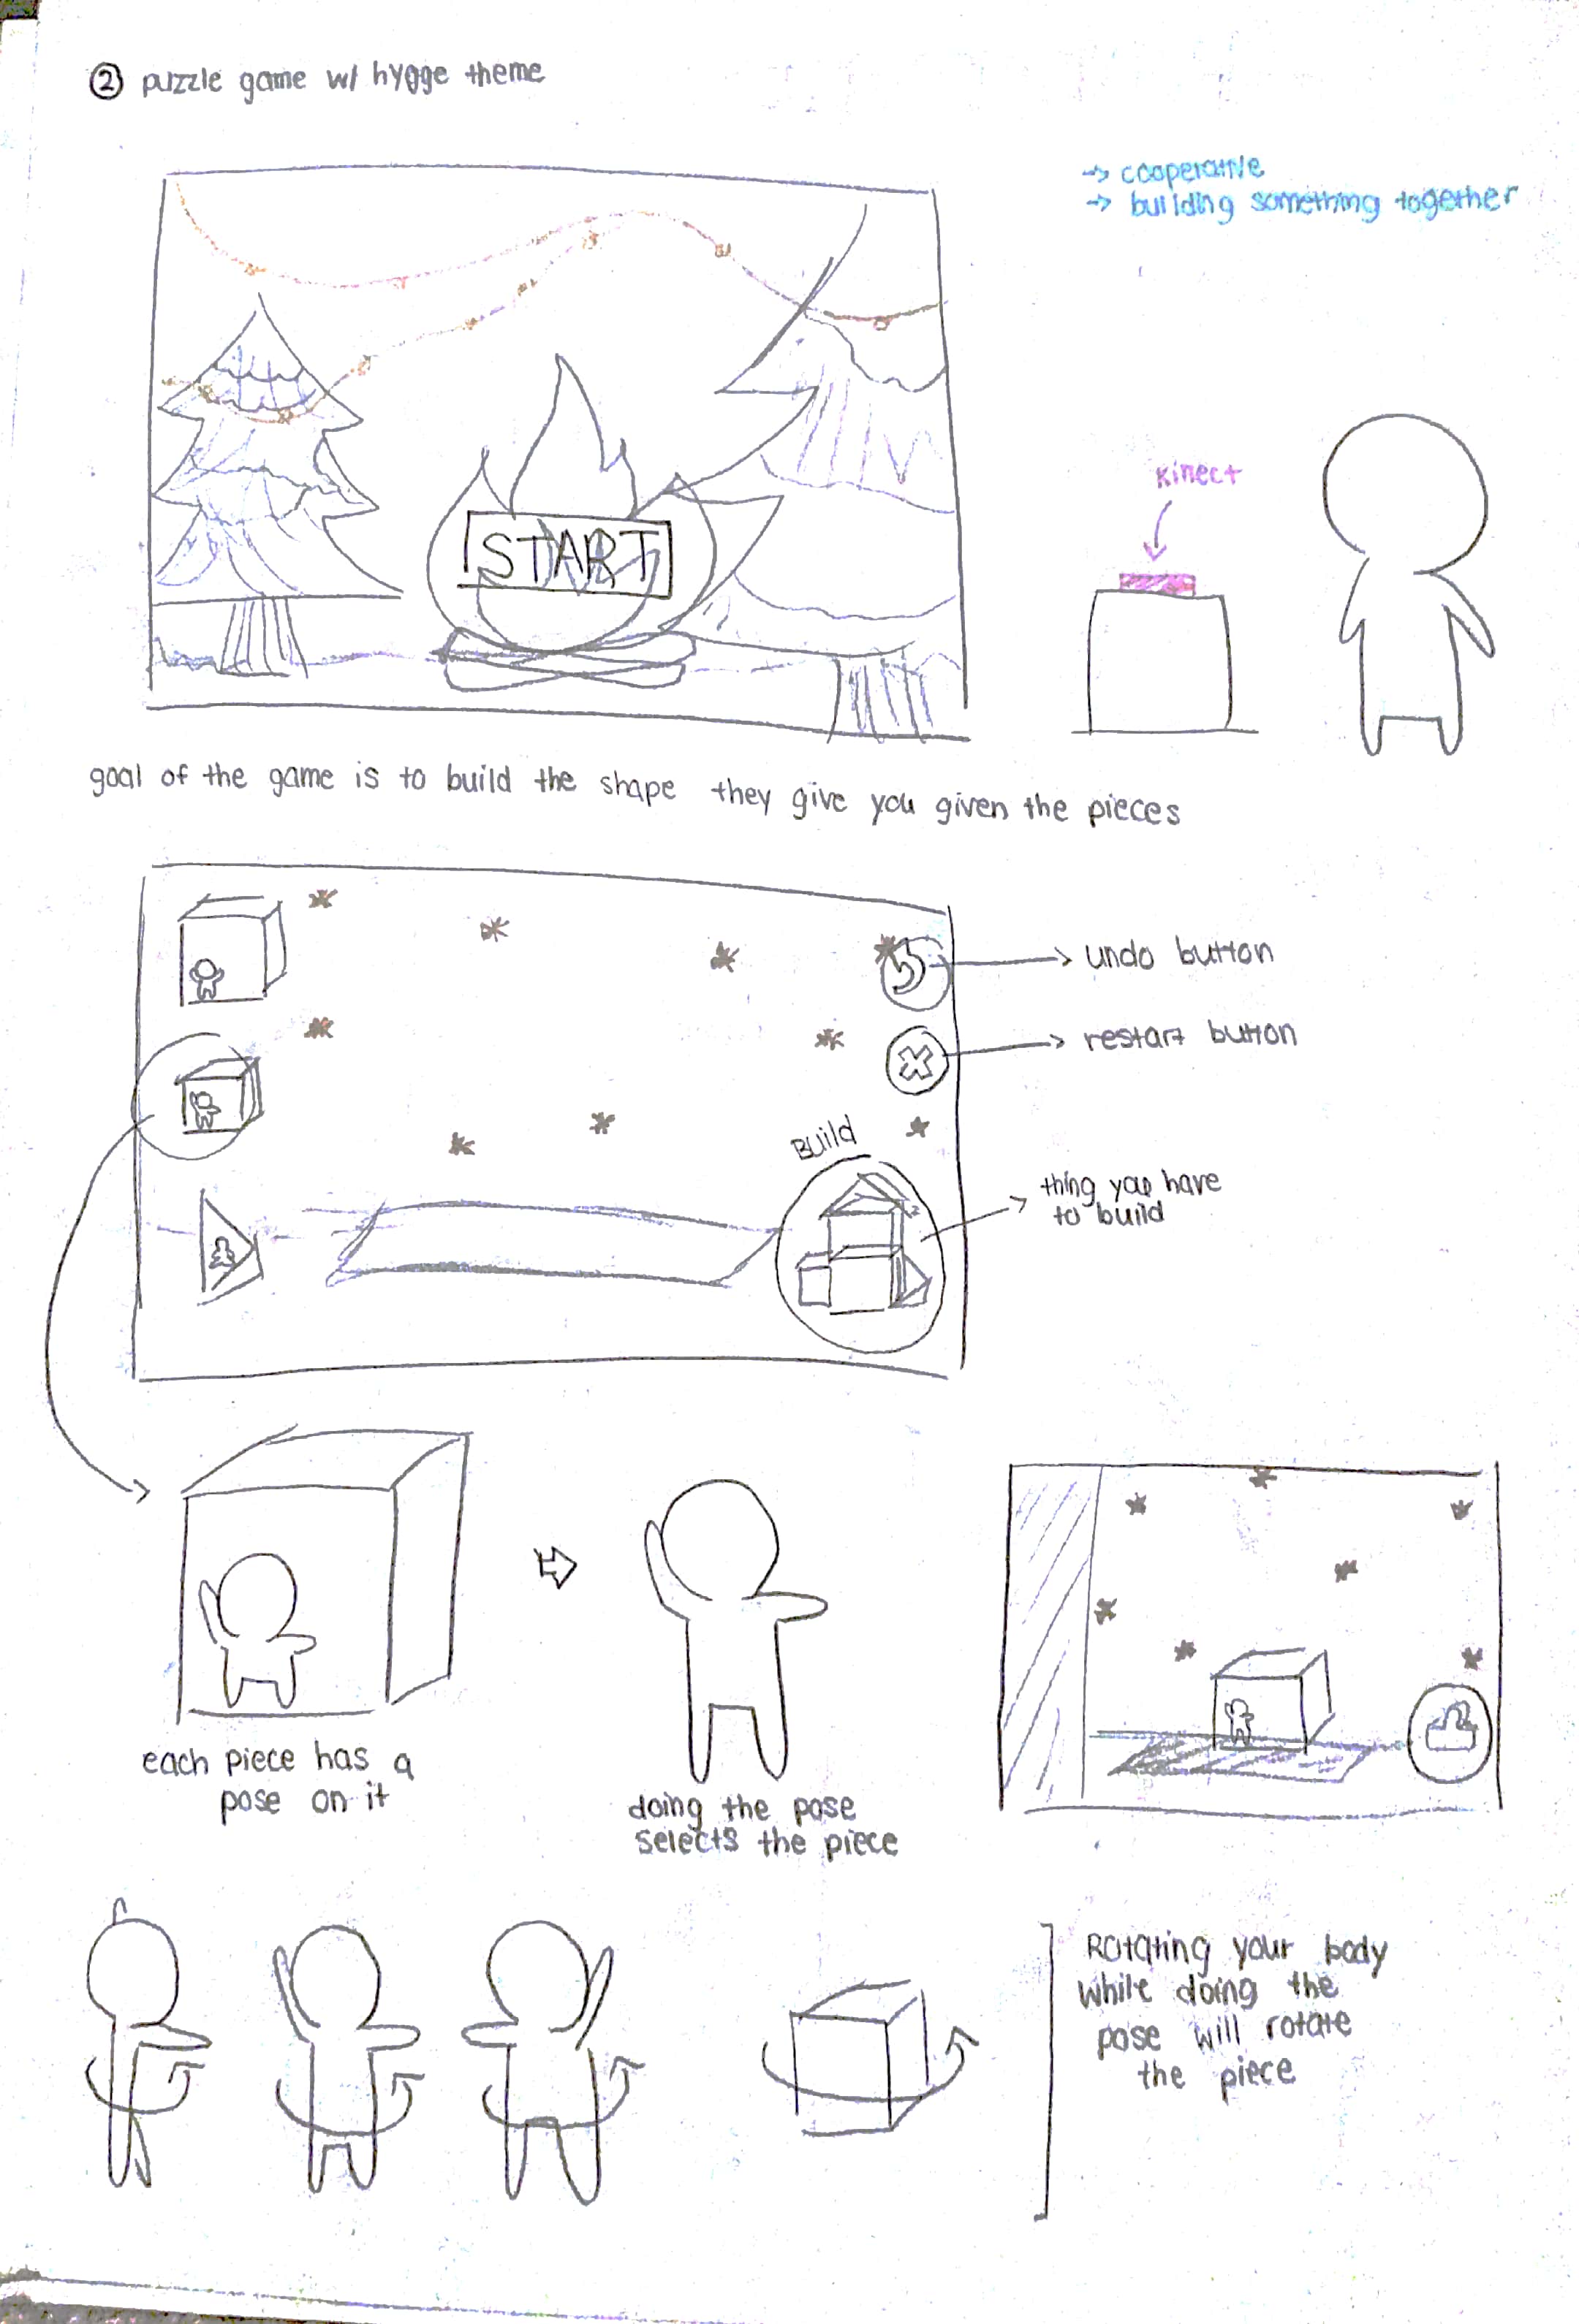 ② puzzle game w/ hygge theme
→ cooperative
→ building something together
START
Kinect
goal of the game is to build the shape they give you given the pieces
undo button
restart button
Build
thing you have
to build
each piece has a
pose on it
doing the pose
selects the piece
Rotating your body
while doing the
pose will rotate
the piece